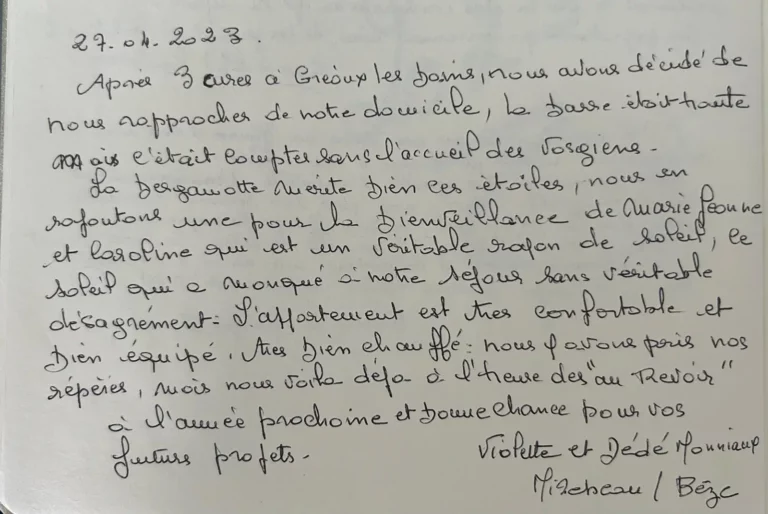 27.04.2023.
Après 3 cures à Gréoux les bains, nous avons décidé de
nous rapprocher de notre domicile, la barre était haute
mais c'était compter sans l'accueil des Vosgiens.
La Bergamotte mérite bien ces étoiles, nous en
rajoutons une pour la bienveillance de Marie Jeanne
et Caroline qui est un véritable rayon de soleil, le
soleil qui a manqué à notre séjour sans véritable
désagrément : L'appartement est très confortable et
bien équipé. très bien chauffé : nous y avons pris nos
répères, mais nous voila déja à l'heure des "au Revoir"
à l'année prochaine et bonne chance pour vos
futurs projets.
Violette et Dédé Monniaux
Mirebeau / Bèze